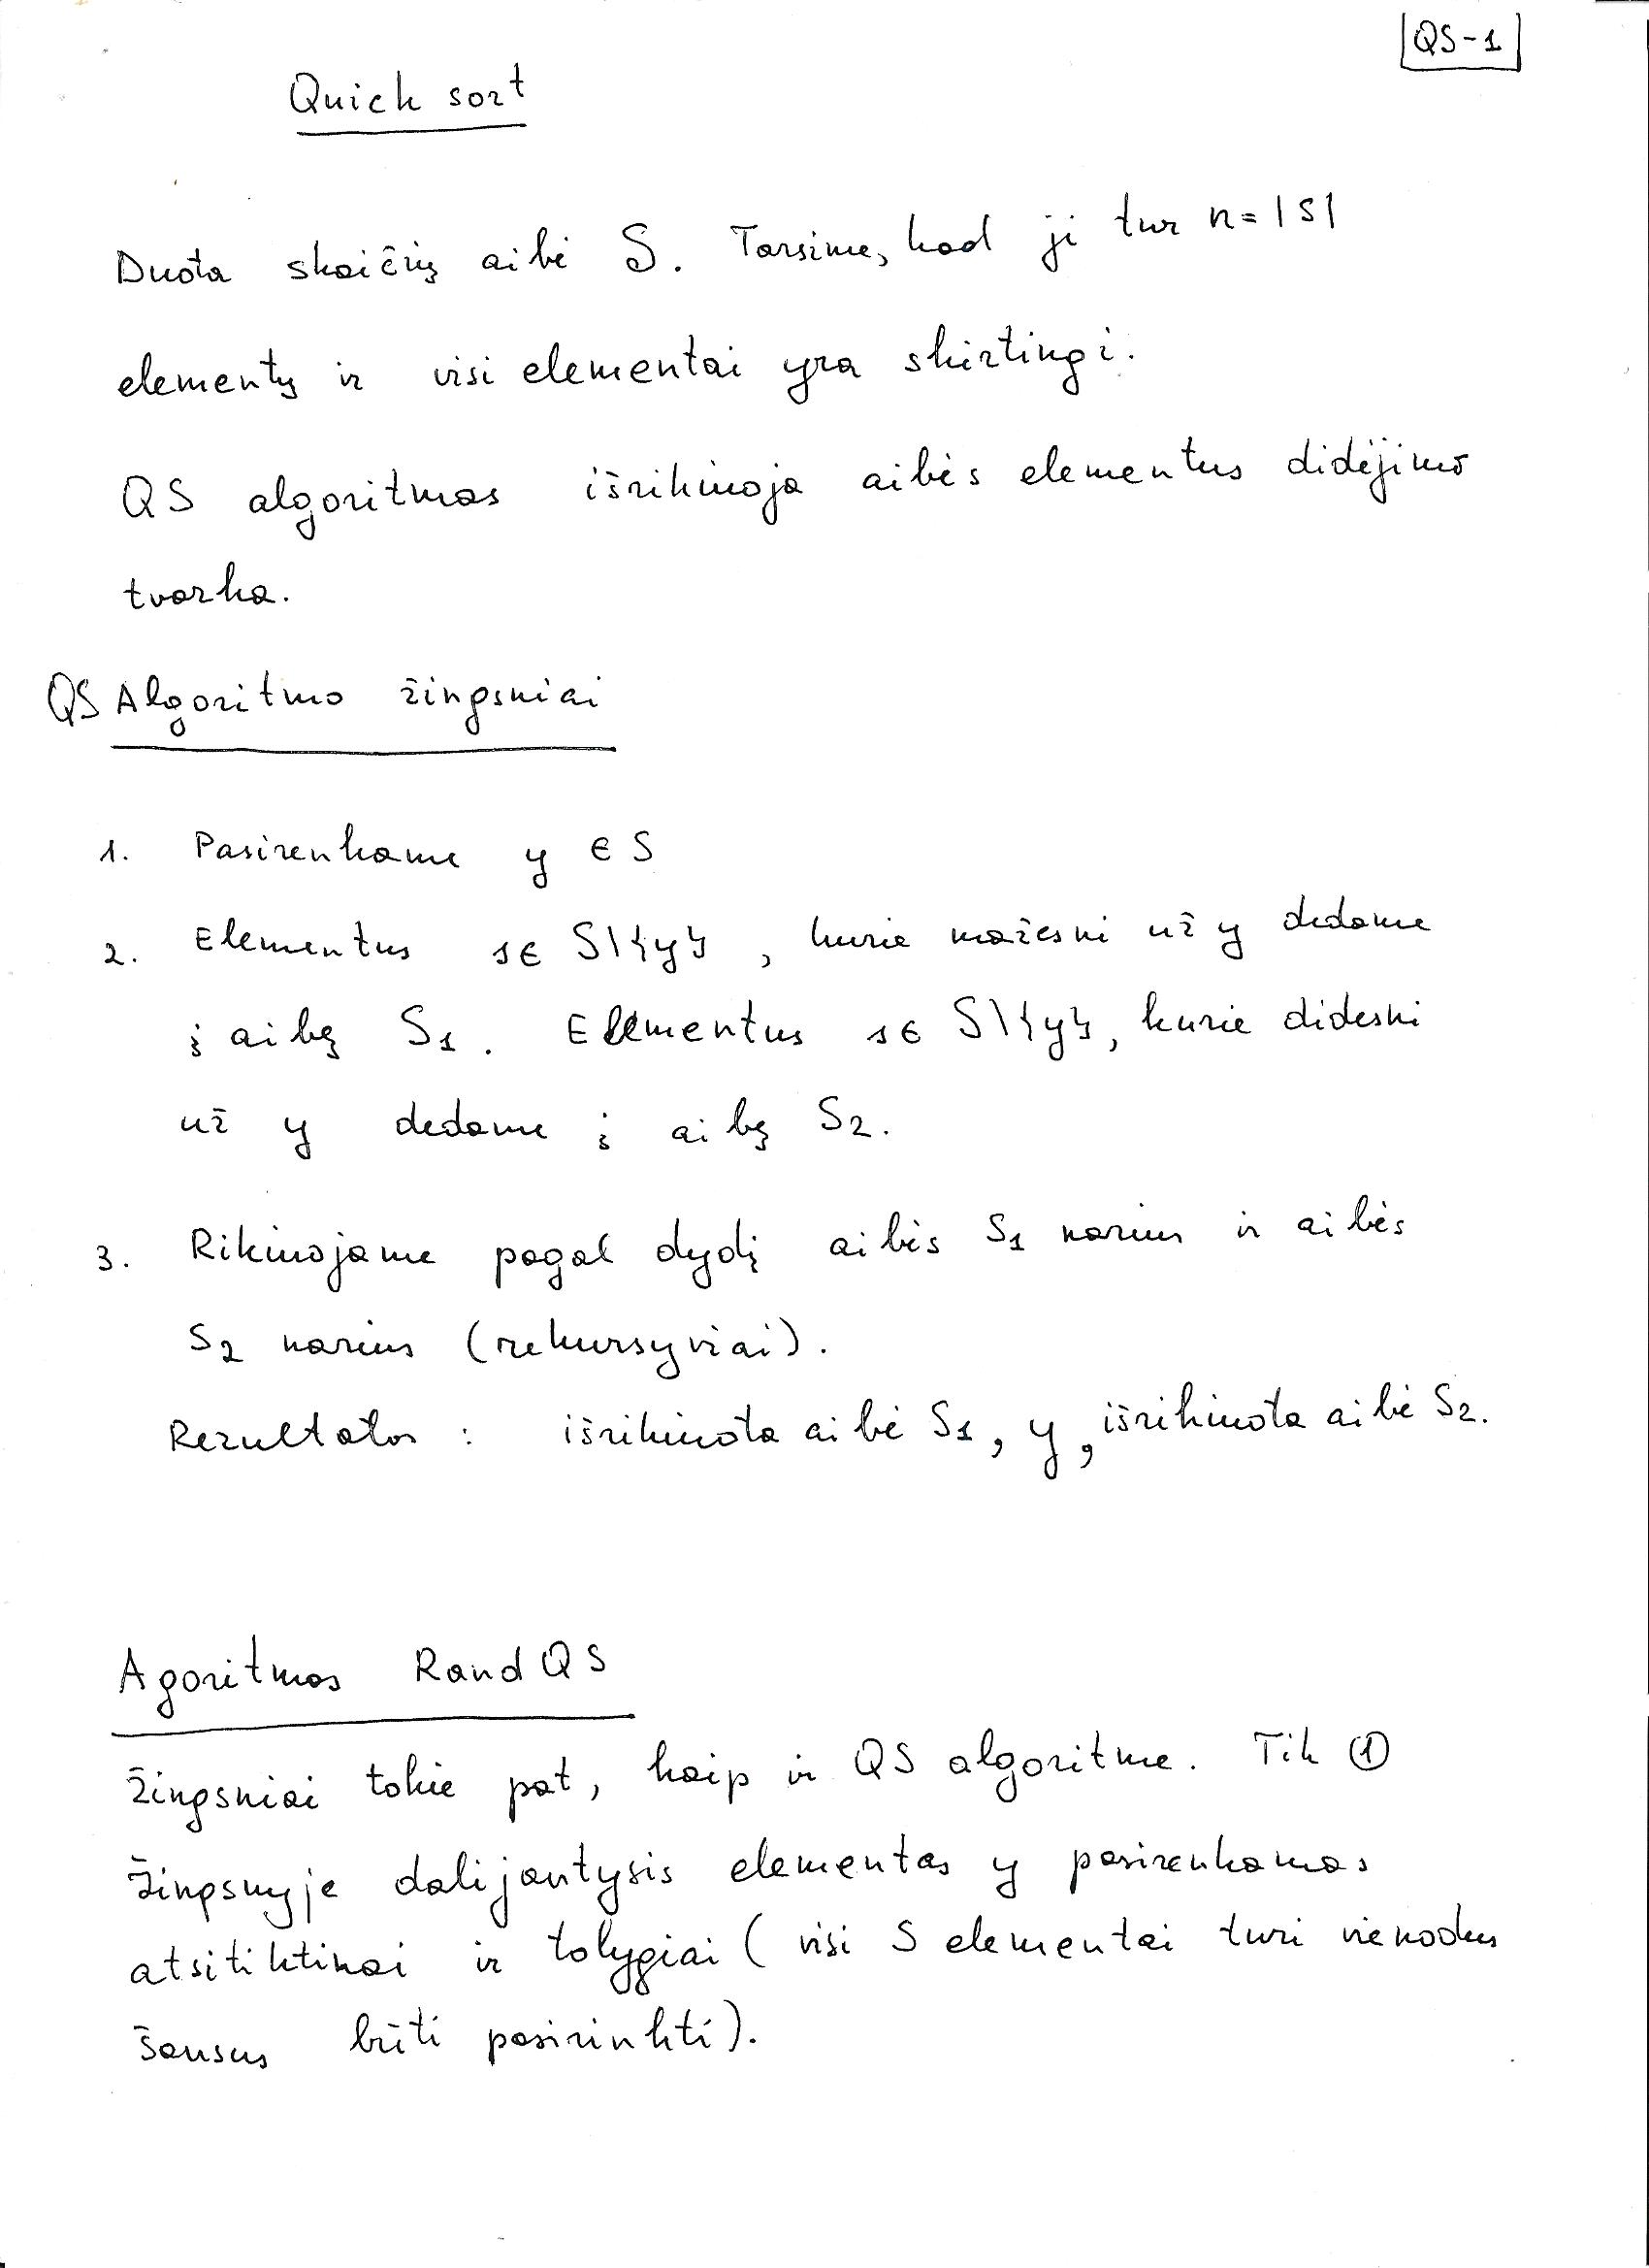 QS-1
Quick sort
Duota skaičių aibė S. Tarsime, kad ji tur n=|S|
elementų ir visi elementai yra skirtingi.
QS algoritmas išrikiuoja aibės elementus didėjimo
tvarka.
QS Algoritmo žingsniai
1. Pasirenkame y ∈ S
2. Elementus s∈ S\{y}, kurie mažesni už y dedame
į aibę S1. Elementus s∈ S\{y}, kurie didesni
už y dedame į aibę S2.
3. Rikiuojame pagal dydį aibės S1 narius ir aibės
S2 narius (rekursyviai).
Rezultatas: išrikiuota aibė S1, y, išrikiuota aibė S2.
Agoritmas RandQS
Žingsniai tokie pat, kaip ir QS algoritme. Tik ①
žingsnyje dalijantysis elementas y pasirenkamas
atsitiktinai ir tolygiai (visi S elementai turi vienodus
šansus būti pasirinkti).